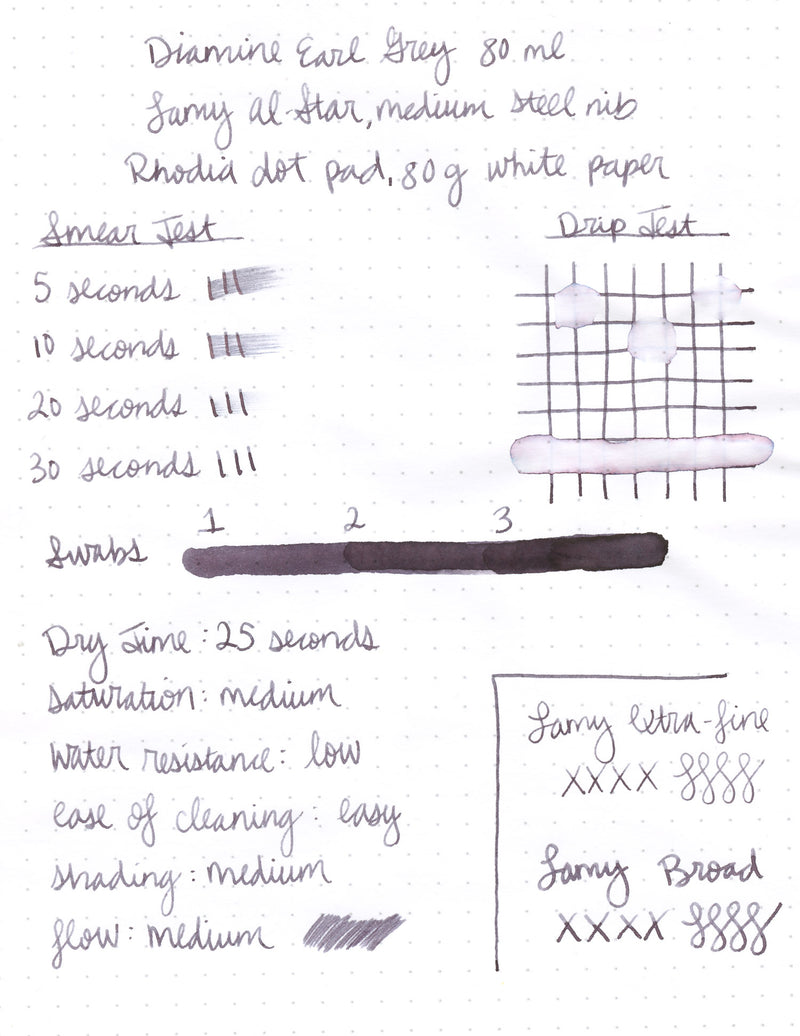 Diamine Earl Grey 80 ml
Lamy al-Star, medium steel nib
Rhodia dot pad, 80g white paper
Smear Test
5 seconds
10 seconds
20 seconds
30 seconds
Drip Test
1 2 3
Swabs
Dry Time: 25 seconds
saturation: medium
water resistance: low
ease of cleaning: easy
shading: medium
flow: medium
Lamy extra-fine
XXXX
Lamy Broad
XXXX